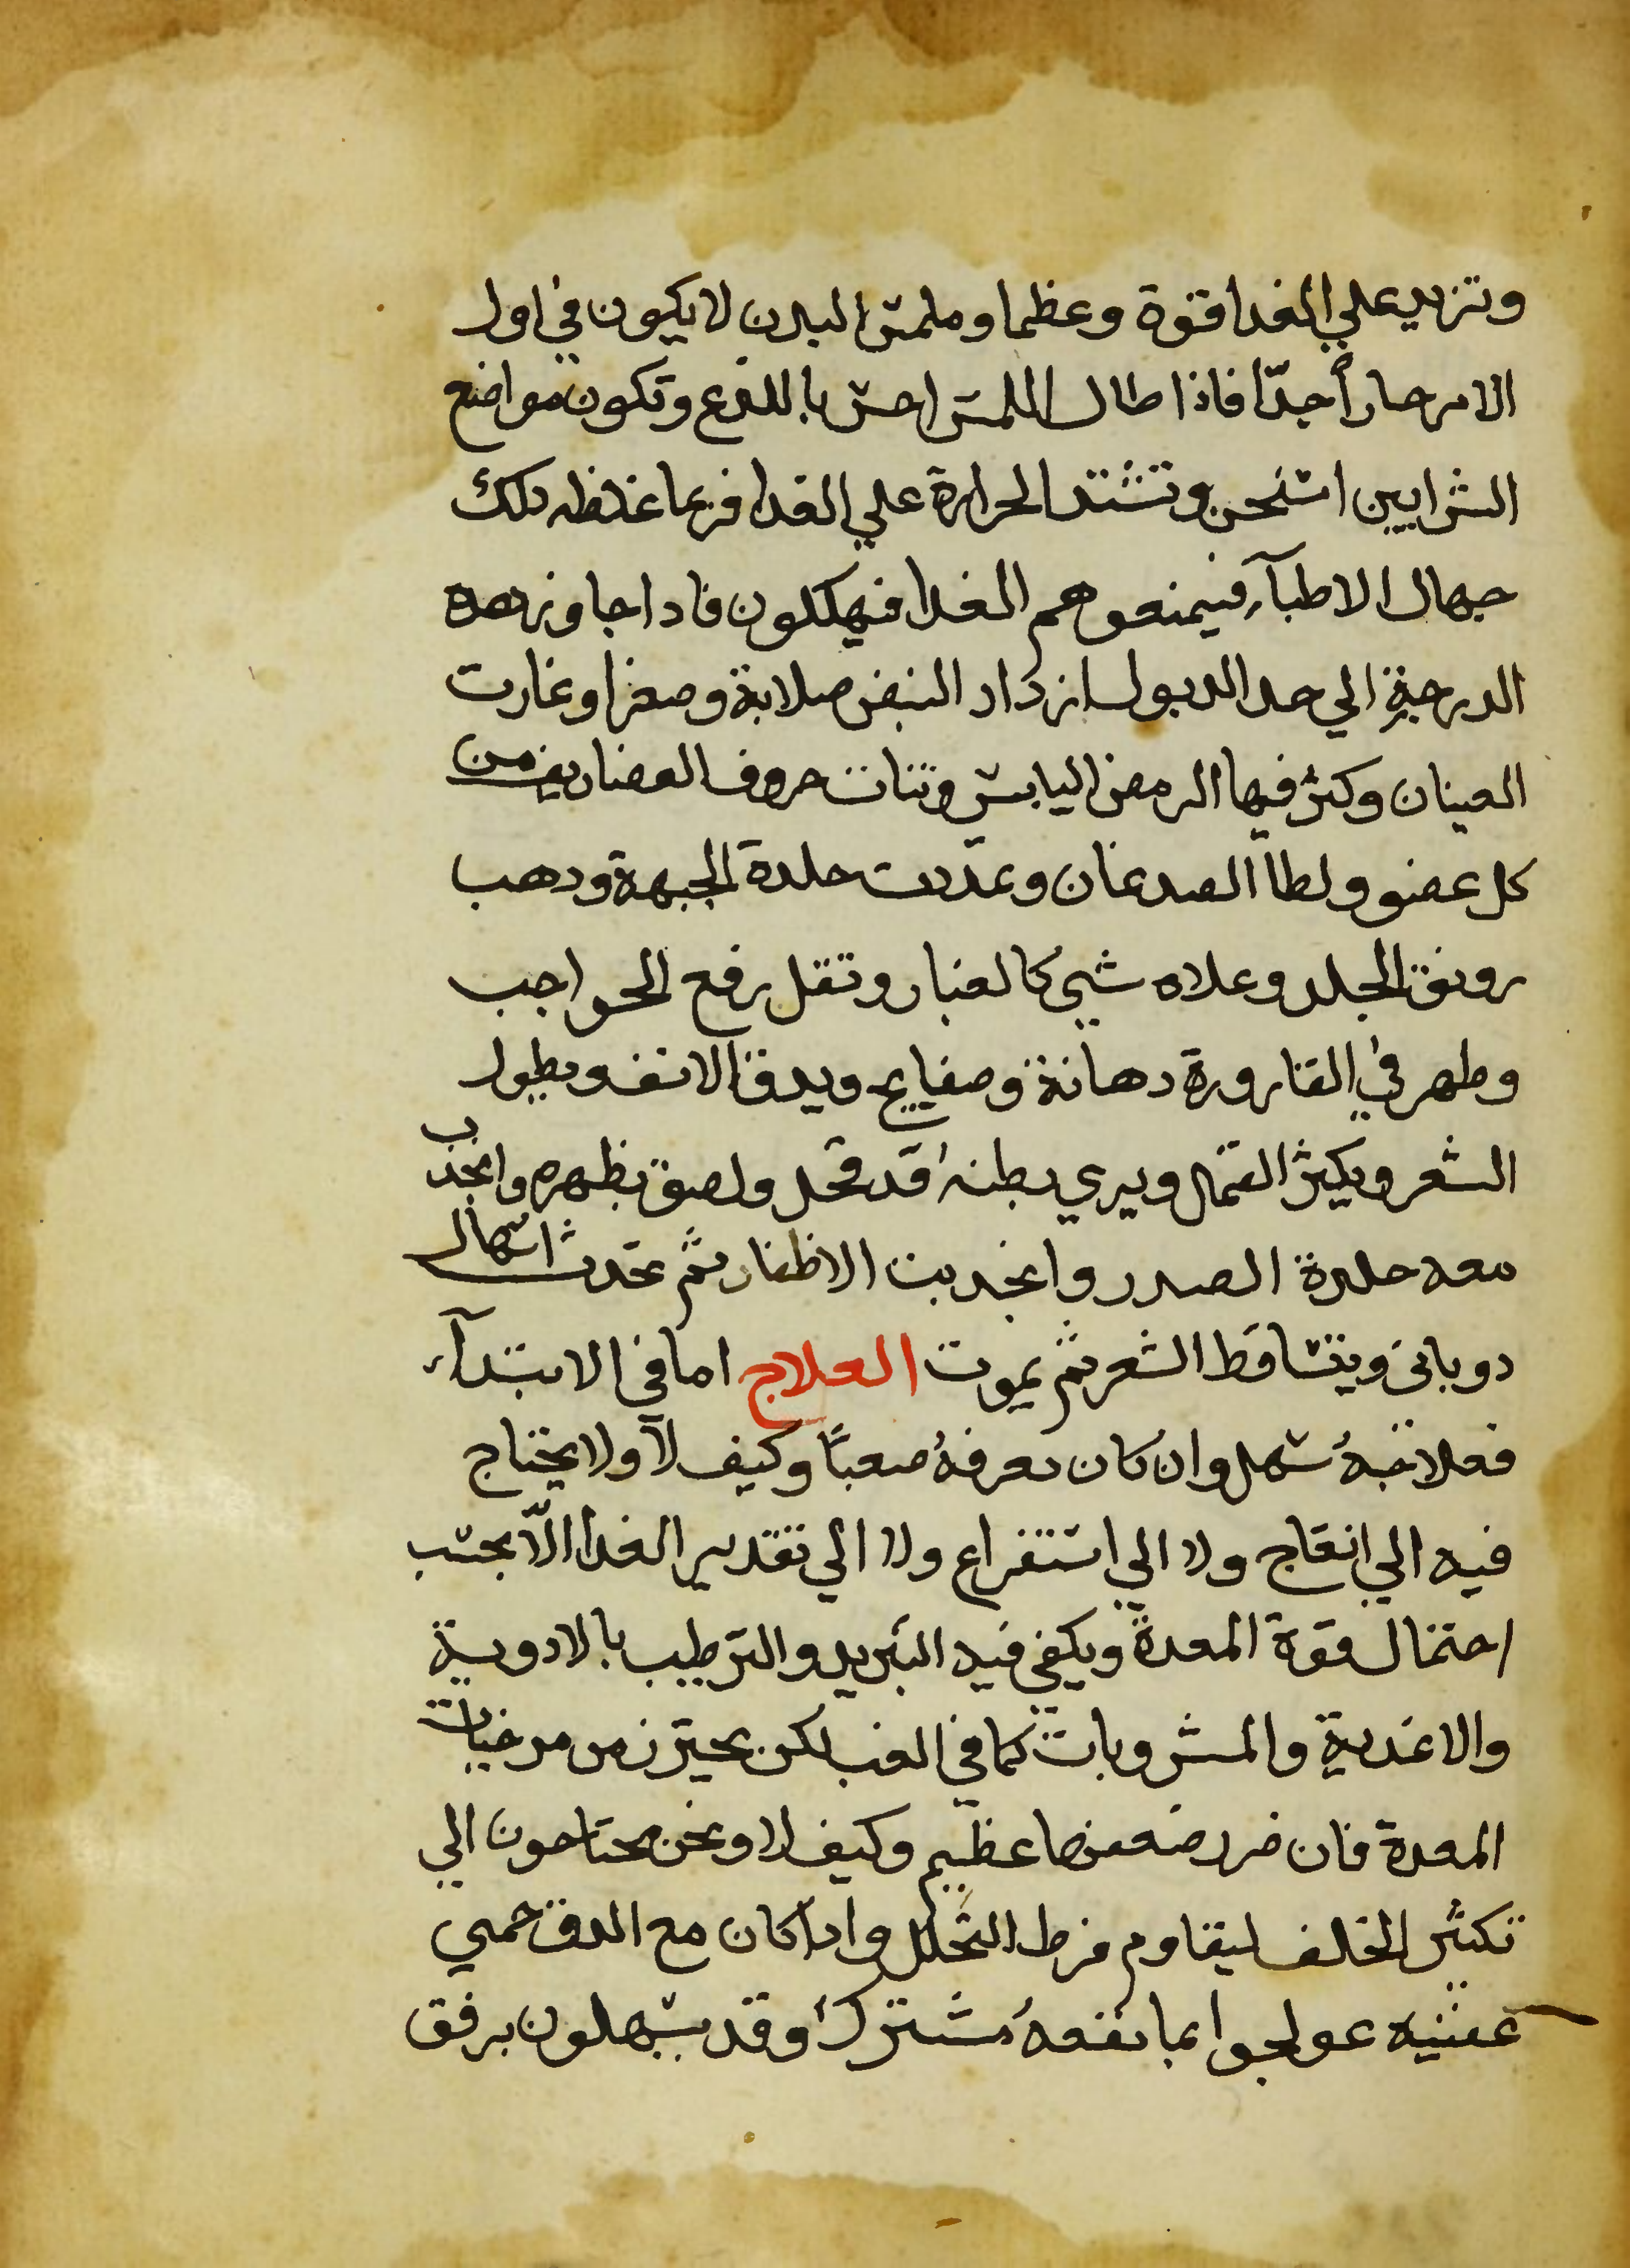 وتزيد علي الغدا قوة وعظما وملمس البدن لا يكون في اول
الامر حاراً جدّا فاذا طال اللمس احس باللدع وتكون مواضع
الشرايين اسخن وتشتد الحرارة علي الغدا فربما غلظه دلك
جهال الاطبآء فيمنعوهم الغدا فيهلكون فادا جاوز هده
الدرجة الي حد الدبول ازداد النبض صلابة وصغرا وغارت
العينان وكثر فيها الرمص اليابس وتنات حروف العضاريف من
كل عضو ولطا الصدغان وتمددت جلدة الجبهة ودهب
رونق الجلد وعلاه شي كالغبار وتقل رفع الحواجب
وظهر في القارورة دهانة وصفايح ويدق الانف ويطول
الشعر ويكثر القمل ويري بطنه قد قحل ولصق بظهره وانجدب
معه جلدة الصدر وانجدبت الاظفار ثم تحدث اسهال
دوباني ويتساقط الشعر ثم يموت العلاج اما في الابتدآء
فعلاجه سهل وان كان معرفه صعبًا وكيف لا ولا يحتاج
فيه الي انضاج ولا الي استفراع ولا الي تقدير الغدا الّا بحسب
احتمال قوة المعدة ويكفي فيه التبريد والترطيب بالادوية
والاغدية والمشروبات كما في الغب لكن يحترز من مرخيات
المعدة فان ضرر ضعفها عظيم وكيف لا ونحن محتاجون الي
تكثر الخلف ليقاوم فرط التحلل وادا كان مع الدق حمي
عفنيه عولجوا بما نفعه مشترك وقد يسهلون برفق